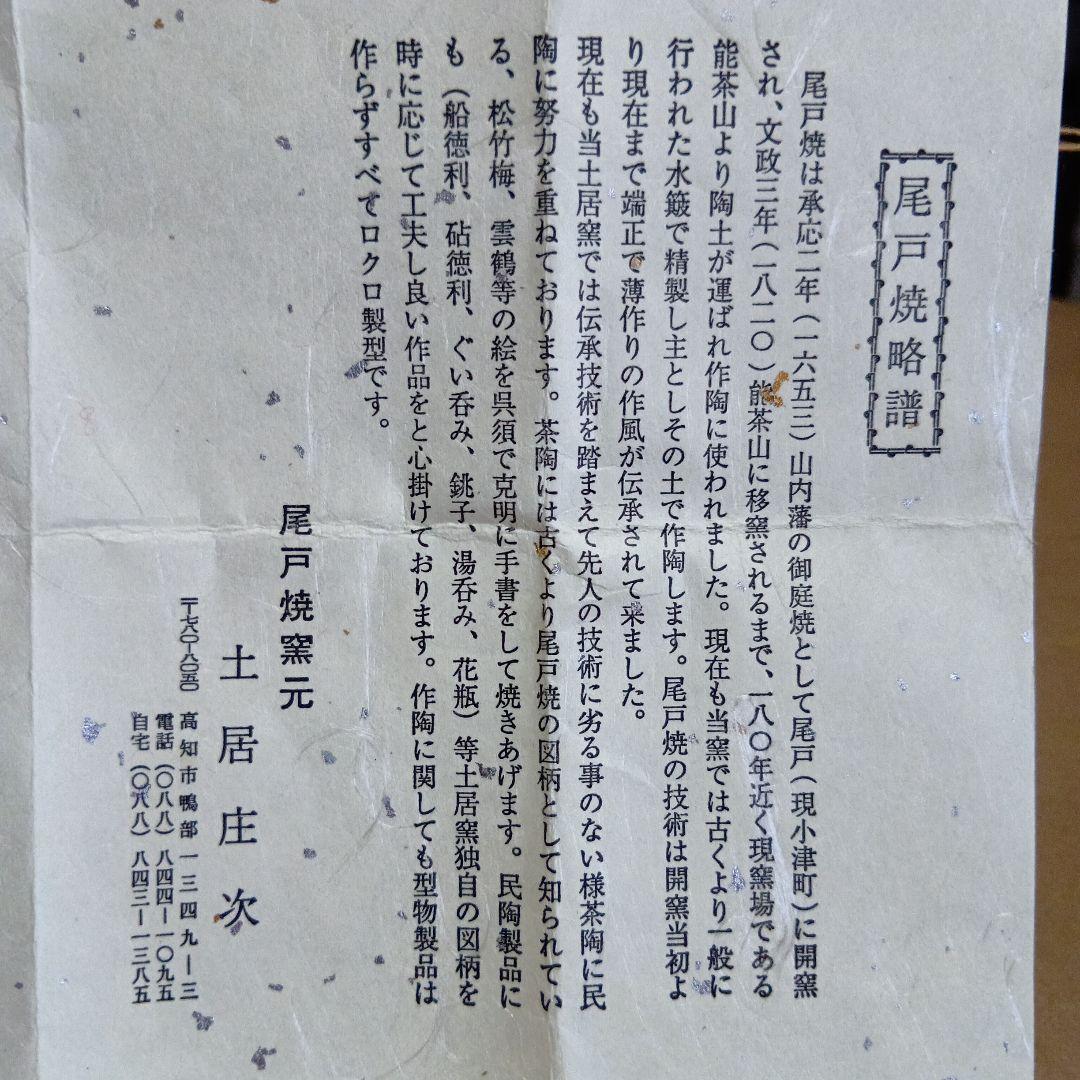 尾戸焼略譜
尾戸焼は承応二年(一六五三)山内藩の御庭焼として尾戸(現小津町)に開窯
され、文政三年(一八二〇)能茶山に移窯されるまで、一八〇年近く現窯場である
能茶山より陶土が運ばれ作陶に使われました。現在も当窯では古くより一般に
行われた水簸で精製し主としてその土で作陶します。尾戸焼の技術は開窯当初よ
り現在まで端正で薄作りの作風が伝承されて来ました。
現在も当土居窯では伝承技術を踏まえて先人の技術に劣る事のない様茶陶に民
陶に努力を重ねております。茶陶には古くより尾戸焼の図柄として知られてい
る、松竹梅、雲鶴等の絵を呉須で克明に手書をして焼きあげます。民陶製品に
も(船徳利、砧徳利、ぐい呑み、銚子、湯呑み、花瓶)等土居窯独自の図柄を
時に応じて工夫し良い作品をと心掛けております。作陶に関しても型物製品は
作らずすべてロクロ製型です。
尾戸焼窯元
土居庄次
〒七八〇-八〇五〇
高知市鴨部一三四九-三
電話(〇八八)八四四-一〇九五
自宅(〇八八)八四三-一三八五